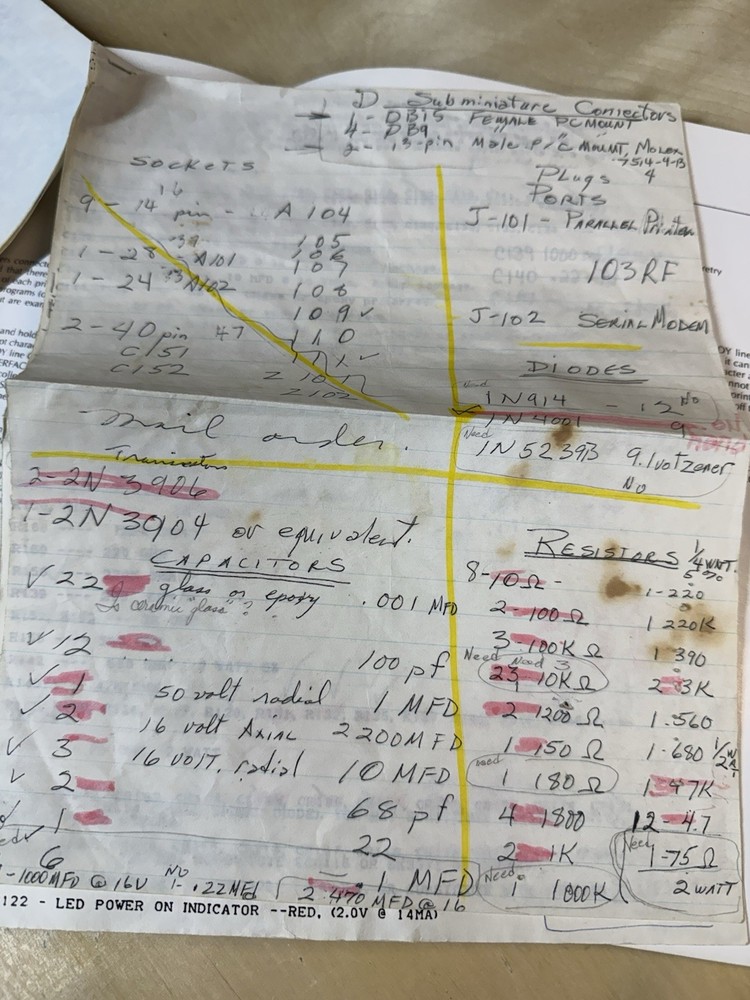 D Subminiature Connectors
1 - DB15 FEMALE PC MOUNT
4 - DB9 " "
2 - 13-pin Male P/C MOUNT, Molex
7514-9-B
4
SOCKETS
16
9 - 14 pin - A 104
105
106
107
108
109 ✓
110
111 ✓
Z 101
Z 102
1 - 28 - A101
1 - 24 A102
2 - 40 pin #7
C151
C152
Plugs
PORTS
J-101 - Parallel Printer
103RF
J-102 SERIAL MODEM
DIODES
Need
1N914 - 12 No
1N4001 9
Need
1N5239B 9.1 volt zener
No
mail order.
Transistors
2-2N 3906
1-2N 3904 or equivalent.
CAPACITORS
✓ 22 glass or epoxy .001 MFD
Is ceramic "glass"?
✓ 12 100 pf
✓ 1 50 volt radial 1 MFD
✓ 2 16 volt AXIAL 2200 MFD
✓ 3 16 volt. radial 10 MFD
✓ 2 68 pf
✓ 1 22
6 .1 MFD
1-1000MFD @ 16V NO 1-.22MFd 2 470 MFD @ 16
122 - LED POWER ON INDICATOR --RED, (2.0V @ 14MA)
RESISTORS 1/4 WATT.
5%
8-10Ω -
2-100Ω
3-100KΩ
Need Need 3
23 10KΩ
1
2 1200Ω
1 150Ω
Need
1 180Ω
4 1800
2 1K
Need
1 1000K
1-220
1 220K
1 390
2 3K
1-560
1-680 1/2 W
1 47K
12-4.7
Need
1-75Ω
2 WATT